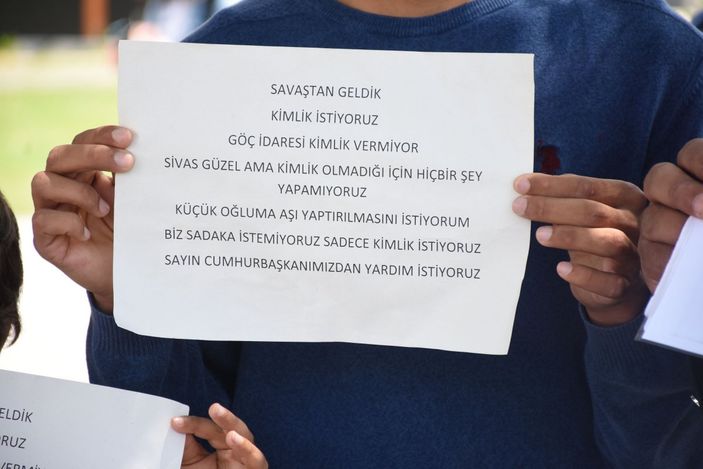 SAVAŞTAN GELDİK
KİMLİK İSTİYORUZ
GÖÇ İDARESİ KİMLİK VERMİYOR
SİVAS GÜZEL AMA KİMLİK OLMADIĞI İÇİN HİÇBİR ŞEY
YAPAMIYORUZ
KÜÇÜK OĞLUMA AŞI YAPTIRILMASINI İSTİYORUM
BİZ SADAKA İSTEMİYORUZ SADECE KİMLİK İSTİYORUZ
SAYIN CUMHURBAŞKANIMIZDAN YARDIM İSTİYORUZ
GELDİK